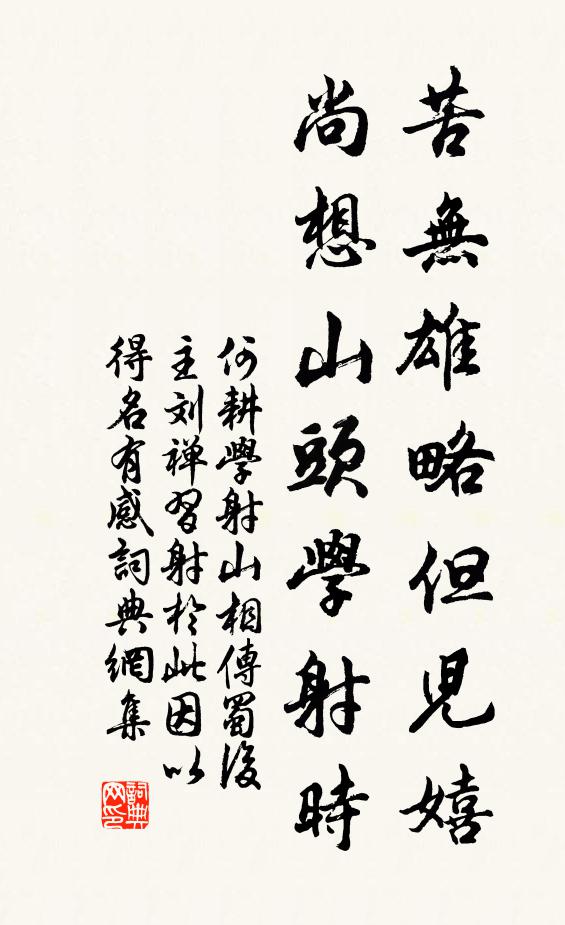 苦無雄略但児嬉
尚想山頭學射時
何耕學射山相傳蜀後
主刘禅習射於此因以
得名有感詞典網集
詞典
网印